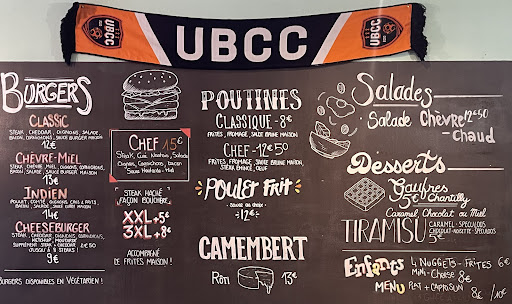 UBCC
UBCC
UBCC
BURGERS
CLASSIC
STEAK, CHEDDAR, OIGNONS, SALADE
BACON, CORNICHONS, SAUCE BURGER MAISON
12€
CHÈVRE-MIEL
STEAK, CHÈVRE, MIEL, OIGNONS, CORNICHONS,
BACON, SALADE, SAUCE BURGER MAISON
13€
INDIEN
POULET, COMTÉ, OIGNONS
BACON, SALADE, SAUCE CURRY MAISON
14€
CHEESEBURGER
STEAK, CHEDDAR, OIGNONS, CORNICHONS,
KETCHUP, MOUTARDE
SUPPLÉMENT STEAK + CHEDDAR 2€50
JUSQU'À 5 STEAKS !
9€
BURGERS DISPONIBLES EN VÉGÉTARIEN !
CHEF 15€
STEAK, Salade
Oignons, Cornichons, Bacon
Sauce Moutarde-Miel
STEAK HACHÉ
FAÇON BOUCHÈRE
XXL +5€
3XL +8€
ACCOMPAGNÉ
DE FRITES MAISON !
POUTINES
CLASSIQUE - 8€
FRITES, FROMAGE, SAUCE BRUNE MAISON
CHEF - 12€50
FRITES, FROMAGE, SAUCE BRUNE MAISON,
STEAK ÉMINCÉ, OEUF
POULET FRIT
Sauce au choix
-12€-
CAMEMBERT
Rôti 13€
Salades
Salade Chèvre 12€50
- Chaud
Desserts
Gaufres
5€ Chantilly
Caramel, Chocolat ou Miel
TIRAMISU CARAMEL - SPECULOOS
5€ CHOCOLAT-NOISETTE - SPECULOOS
Enfants 4 NUGGETS - FRITES 6€
MENU Mini-Cheese 8€
PLAT + CAPRISUN 8€ /10€